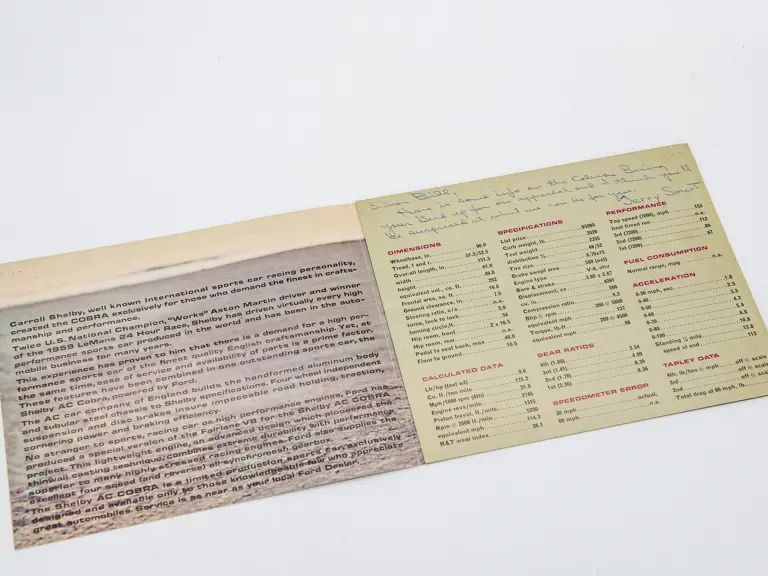 Carroll Shelby, well known International sports car racing personality,
created the COBRA exclusively for those who demand the finest in crafts-
manship and performance.
Twice U.S. National Champion, "Works" Aston Martin driver and winner
of the 1959 LeMans 24 Hour Race, Shelby has driven virtually every high
performance sports car produced in the world and has been in the auto-
mobile business for many years.
This experience has proven to him that there is a demand for a high per-
formance sports car of the finest quality English craftsmanship. Yet, at
the same time, ease of service and availability of parts is a prime factor.
These features have been combined in one outstanding sports car, the
Shelby AC Cobra, powered by Ford.
The AC car company, of England builds the handformed aluminum body
and tubular steel chassis to Shelby specifications. Four wheel independent
suspension and disc brakes insure impeccable road holding, traction,
cornering power and braking efficiency.
No stranger to sports, racing car or high performance engines, Ford has
produced a special version of the Fairlane V8 for the Shelby AC COBRA
project. This lightweight engine, an advanced design which pioneered the
thinwall casting technique, combines extreme durability with performance
superior to many highly stressed racing engines. Ford also supplies the
excellent four speed (and reverse) all-synchromesh gearbox.
The Shelby AC COBRA is a limited production sports car, exclusively
designed and available only to those knowledgeable few who appreciate
great automobiles. Service is as near as your local Ford Dealer.
Bill,
Here is some info on the Cobra. Bring
your Bird up for an appraisal and I think you'll
be surprised at what we can do for you.
DIMENSIONS
Wheelbase, in. 90.0
Tread, f and r. 51.5/52.5
Over-all length, in. 151.3
width 61.0
height 49.0
equivalent vol., cu. ft.
Frontal area, sq. ft. 16.6
Ground clearance, in. 7.0
Steering ratio, o/a n.a.
turns, lock to lock 2.0
turning circle, ft. 34
Hip room, front 2 x 16.5
Hip room, rear n.a.
Pedal to seat back, max 40.0
Floor to ground 10.5
CALCULATED DATA
Lb/hp (test wt) 9.0
Cu. ft./ton mile 172.2
Mph/1000 rpm (4th) 21.8
Engine revs/mile 2745
Piston travel, ft./mile 1315
Rpm @ 2500 ft/min 5220
equivalent mph 113.7
R&T wear index 36.1
SPECIFICATIONS
List price $5995
Curb weight, lb. 2020
Test weight 2355
distribution % 48/52
Tire size
Brake swept area 580
Engine type V-8, ohv
Bore & stroke 3.80 x 2.87
Displacement, cc 4261
cu. in. 260
Compression ratio 9.2
Bhp @ rpm 260 @ 5800
equivalent mph
Torque, lb-ft 269 @ 4500
equivalent mph
GEAR RATIOS
4th (1.00) 3.54
3rd (1.41) 4.99
2nd (1.78) 6.30
1st (2.36) 8.36
SPEEDOMETER ERROR
30 mph actual,
60 mph n.a.
PERFORMANCE
Top speed (7000), mph 153
best timed run n.a.
3rd (7200) 112
2nd (7200)
1st (7200) 67
FUEL CONSUMPTION
Normal range, mpg n.a.
ACCELERATION
0-30 mph, sec. 1.8
0-40 2.5
0-50 3.3
0-60 4.2
0-70 5.4
0-80 6.8
0-100 10.8
Standing ¼ mile 13.8
speed at end 112
TAPLEY DATA
4th, lb/ton @ mph off scale
3rd off scale
2nd off scale
Total drag at 60 mph, lb.